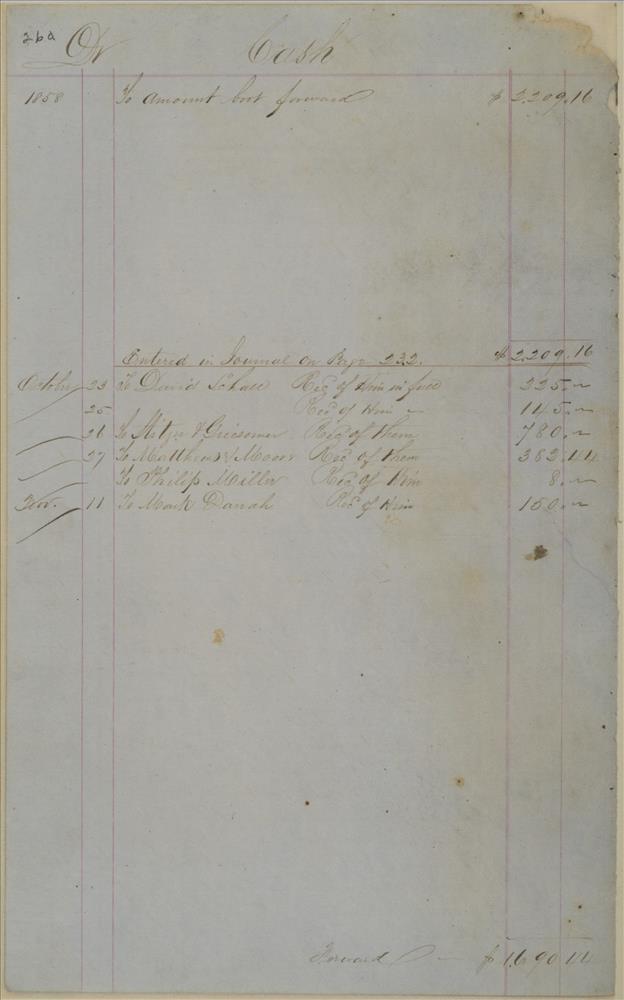 26a Dr Cash
1858 To amount bort forward $ 2,209.16
Entered in Journal on Page 232. $ 2,209.16
October 23 To David Schall Recd of Him in full 225.~
25 Recd of Him ~ 145.~
26 To & Griesemer Recd of them 780.~
27 To Matthews & Moore Recd of them 382.44
To Philip Miller Recd of Him 8.~
Nov. 11 To Mark Darrah Recd of Him 150.~
Forward $ 1690 44